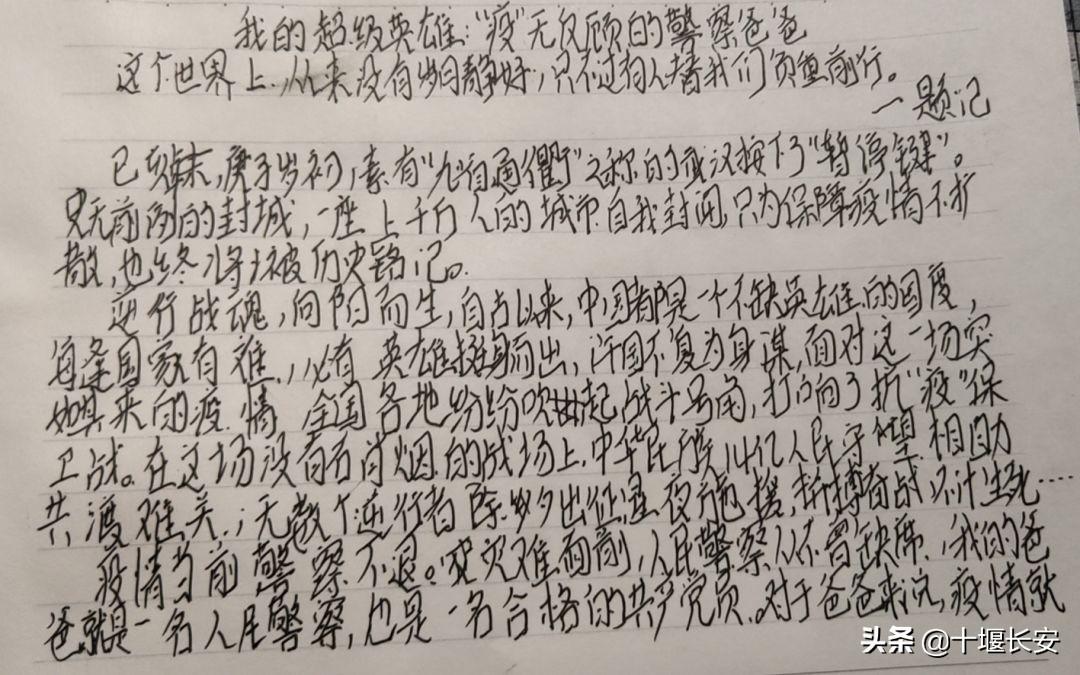 我的超级英雄:“疫”无反顾的警察爸爸
这个世界上,从来没有岁月静好,只不过有人替我们负重前行。
—题记
己亥末,庚子岁初,素有“九省通衢”之称的武汉按下了“暂停键”。
史无前例的封城,一座上千万人的城市自我封闭,只为保障疫情不扩
散,也终将被历史铭记。
逆行战魂,向阳而生,自古以来,中国都是一个不缺英雄的国度,
每逢国家有难,必有英雄挺身而出,许国不复为身谋,面对这一场突
如其来的疫情,全国各地纷纷吹起战斗号角,打响了抗“疫”保
卫战。在这场没有硝烟的战场上,中华民族14亿人民守望相助
共渡难关,无数个逆行者除夕出征,星夜驰援,拼搏奋战,不计生死……
疫情当前警察不退。灾难面前,人民警察从不曾缺席,我的爸
爸就是一名人民警察,也是一名合格的共产党员。对于爸爸来说,疫情就
头条 @十堰长安